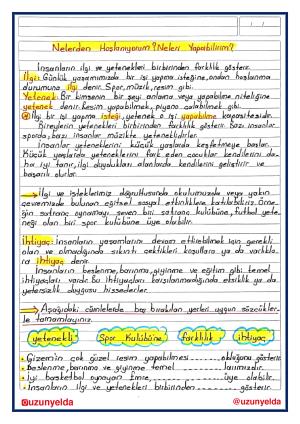 Nelerden Hoşlanıyorum? Neleri Yapabilirim?
İnsanların ilgi ve yetenekleri birbirinden farklılık gösterir.
İlgi: Günlük yaşamımızda bir işi yapma isteğine, ondan hoşlanma
durumuna ilgi denir. Spor, müzik, resim gibi.
Yetenek: Bir kimsenin bir şeyi anlama veya yapabilme niteliğine
yetenek denir. Resim yapabilmek, piyano çalabilmek gibi.
İlgi bir işi yapma isteği, yetenek o işi yapabilme kapasitesidir.
Bireylerin yetenekleri birbirinden farklılık gösterir. Bazı insanlar
sporda, bazı insanlar müzikte yeteneklidirler.
İnsanlar yeteneklerini küçük yaşlarda keşfetmeye başlar.
Küçük yaşlarda yeteneklerini fark eden çocuklar kendilerini da-
ha iyi tanır, ilgi duydukları alanlarda kendilerini geliştirir ve
başarılı olurlar.
İlgi ve isteklerimiz doğrultusunda okulumuzda veya yakın
çevremizde bulunan eğitsel sosyal etkinliklere katılabiliriz. Örne-
ğin satranç oynamayı seven biri satranç kulübüne, futbol yete-
neği olan biri spor kulübüne üye olabilir.
İhtiyaç: İnsanların yaşamlarını devam ettirebilmek için gerekli
olan ve olmadığında sıkıntı çektikleri koşullara ya da varlıkla-
ra ihtiyaç denir.
İnsanların beslenme, barınma, giyinme ve eğitim gibi temel
ihtiyaçları vardır. Bu ihtiyaçları karşılanmadığında eksiklik ya da
yetersizlik duygusu hissederler.
Aşağıdaki cümlelerde boş bırakılan yerleri uygun sözcükler-
le tamamlayınız.
yetenekli Spor Kulübüne farklılık ihtiyaç
Gizem'in çok güzel resim yapabilmesi ........... olduğunu gösterir.
Beslenme, barınma ve giyinme temel ........... larımızdır.
İyi basketbol oynayan Emre, ........... üye olabilir.
İnsanların ilgi ve yetenekleri birbirinden ........... gösterir.
@uzunyelda @uzunyelda